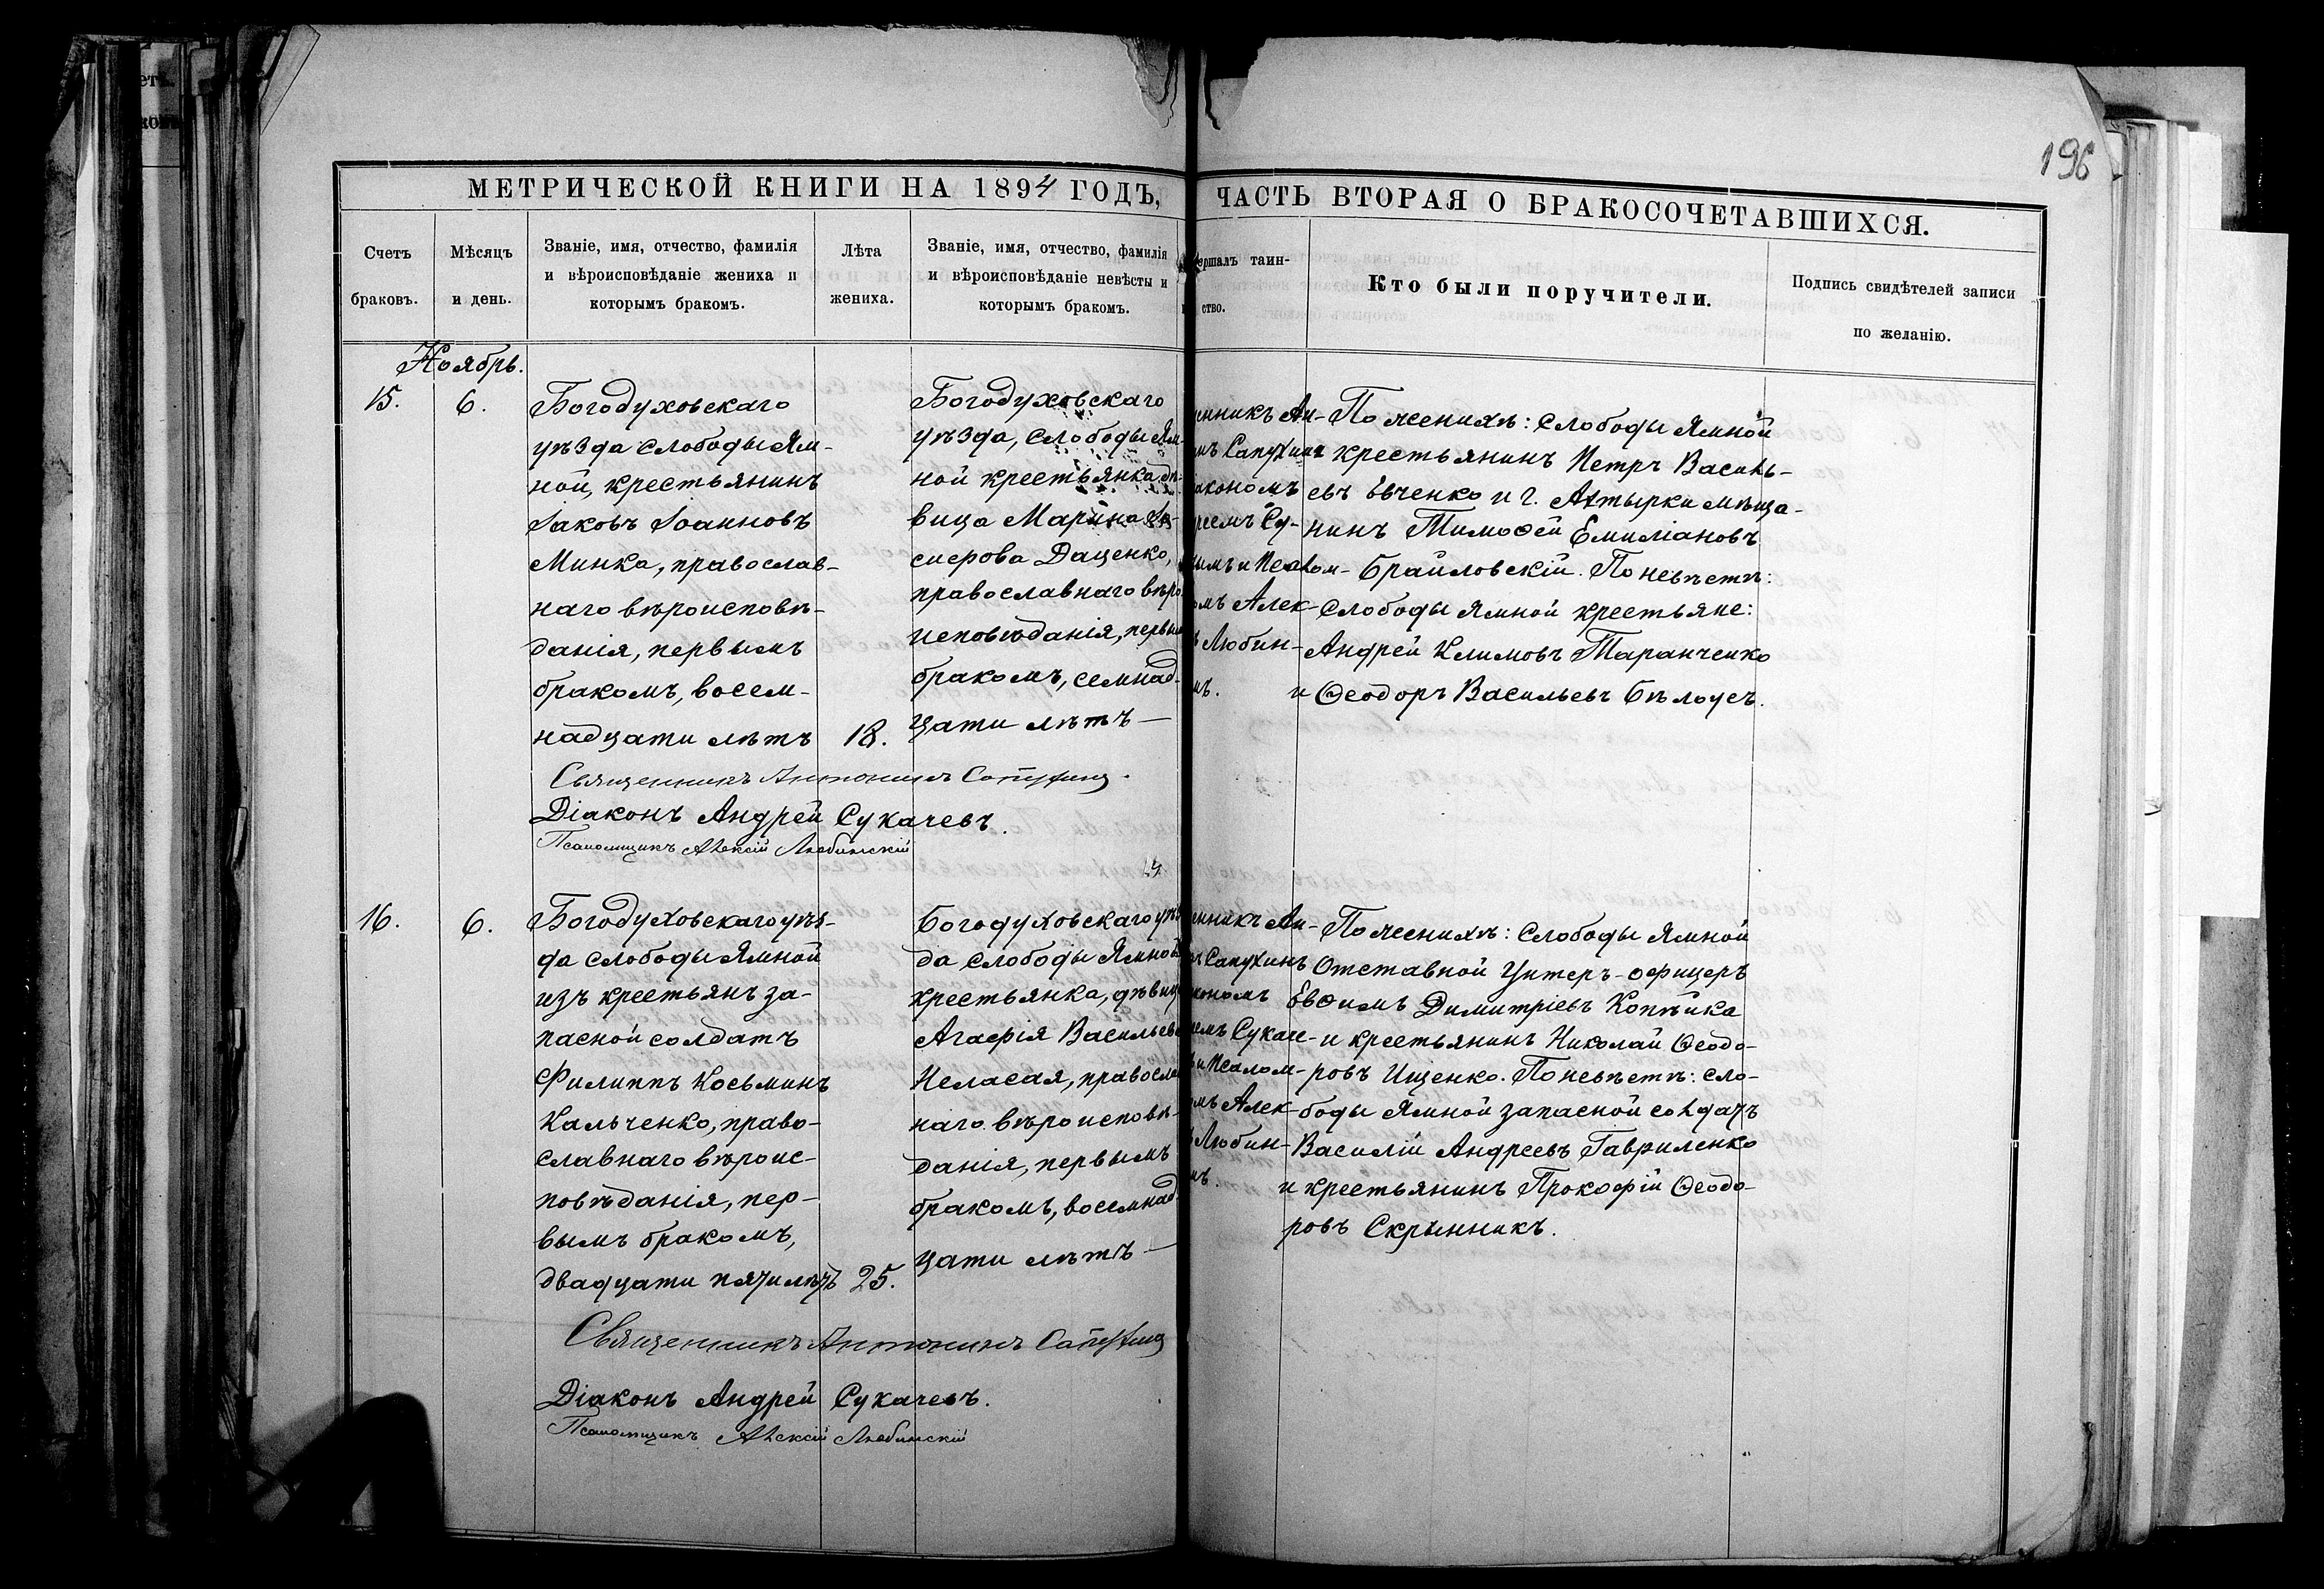 196
МЕТРИЧЕСКОЙ КНИГИ НА 1894 ГОДЪ,
ЧАСТЬ ВТОРАЯ О БРАКОСОЧЕТАВШИХСЯ.
Счетъ
браковъ.
Мѣсяцъ
и день.
Званіе, имя, отчество, фамилія
и вѣроисповѣданіе жениха и
которымъ бракомъ.
Лѣта
жениха.
Званіе, имя, отчество, фамилія
и вѣроисповѣданіе невѣсты и
которымъ бракомъ.
ершалъ таин-
ство.
Кто были поручители.
Подпись свидѣтелей записи
по желанію.
Ноябрь.
15.
6.
Богодуховскаго
уѣзда слободы Ям-
ной, крестьянинъ
Іаковъ Іоанновъ
Минка, православ-
наго вѣроисповѣ-
данія, первымъ
бракомъ, восем-
надцати лѣтъ
18.
Богодуховскаго
уѣзда, слободы Ям-
ной крестьянка дѣ-
вица Марина
Даценко,
православнаго вѣро
исповѣданія, первым
бракомъ, семнад-
цати лѣтъ —
нникъ Ан-
нъ Сапухинъ
акономъ
реемъ Су-
ымъ и Псалом-
омъ Алек-
ъ Любин-
мъ.
По женихѣ: слободы Ямной
крестьянинъ Петръ Василь-
евъ Евченко и г. Ахтырки мѣща-
нинъ Тимофей Емиліановъ
Брайловскій. По невѣстѣ:
слободы Ямной крестьяне:
Андрей Климовъ Таранченко
и Ѳеодоръ Васильевъ Бѣлоусъ.
Священникъ Антонинъ Сапухинъ.
Діаконъ Андрей Сукачевъ.
Псаломщикъ Алексій Любинскій
16.
6.
Богодуховскаго уѣз-
да слободы Ямной
изъ крестьянъ за-
пасной солдатъ
Филиппъ Косьминъ
Кальченко, право-
славнаго вѣроис-
повѣданія, пер-
вымъ бракомъ,
двадцати пяти лѣтъ
25.
Богодуховскаго уѣз
да слободы Ямной
крестьянка, дѣвица
Агафія Васильев
Неласая, правосла
наго вѣроисповѣ-
данія, первымъ
бракомъ, восемнад-
цати лѣтъ —
нникъ Ан-
нъ Сапухинъ
кономъ
емъ Сукаче-
ъ и Псалом-
омъ Алек-
Любин-
мъ.
По женихѣ: слободы Ямной
Отставной Унтеръ-офицеръ
Евѳимъ Димитріевъ Копѣйка
и крестьянинъ Николай Ѳеодо-
ровъ Ищенко. По невѣстѣ: сло-
боды Ямной запасной солдатъ
Василій Андреевъ Гавриленко
и крестьянинъ Прокофій Ѳеодо-
ровъ Скрынникъ.
Священникъ Антонинъ Сапухинъ
Діаконъ Андрей Сукачевъ.
Псаломщикъ Алексій Любинскій